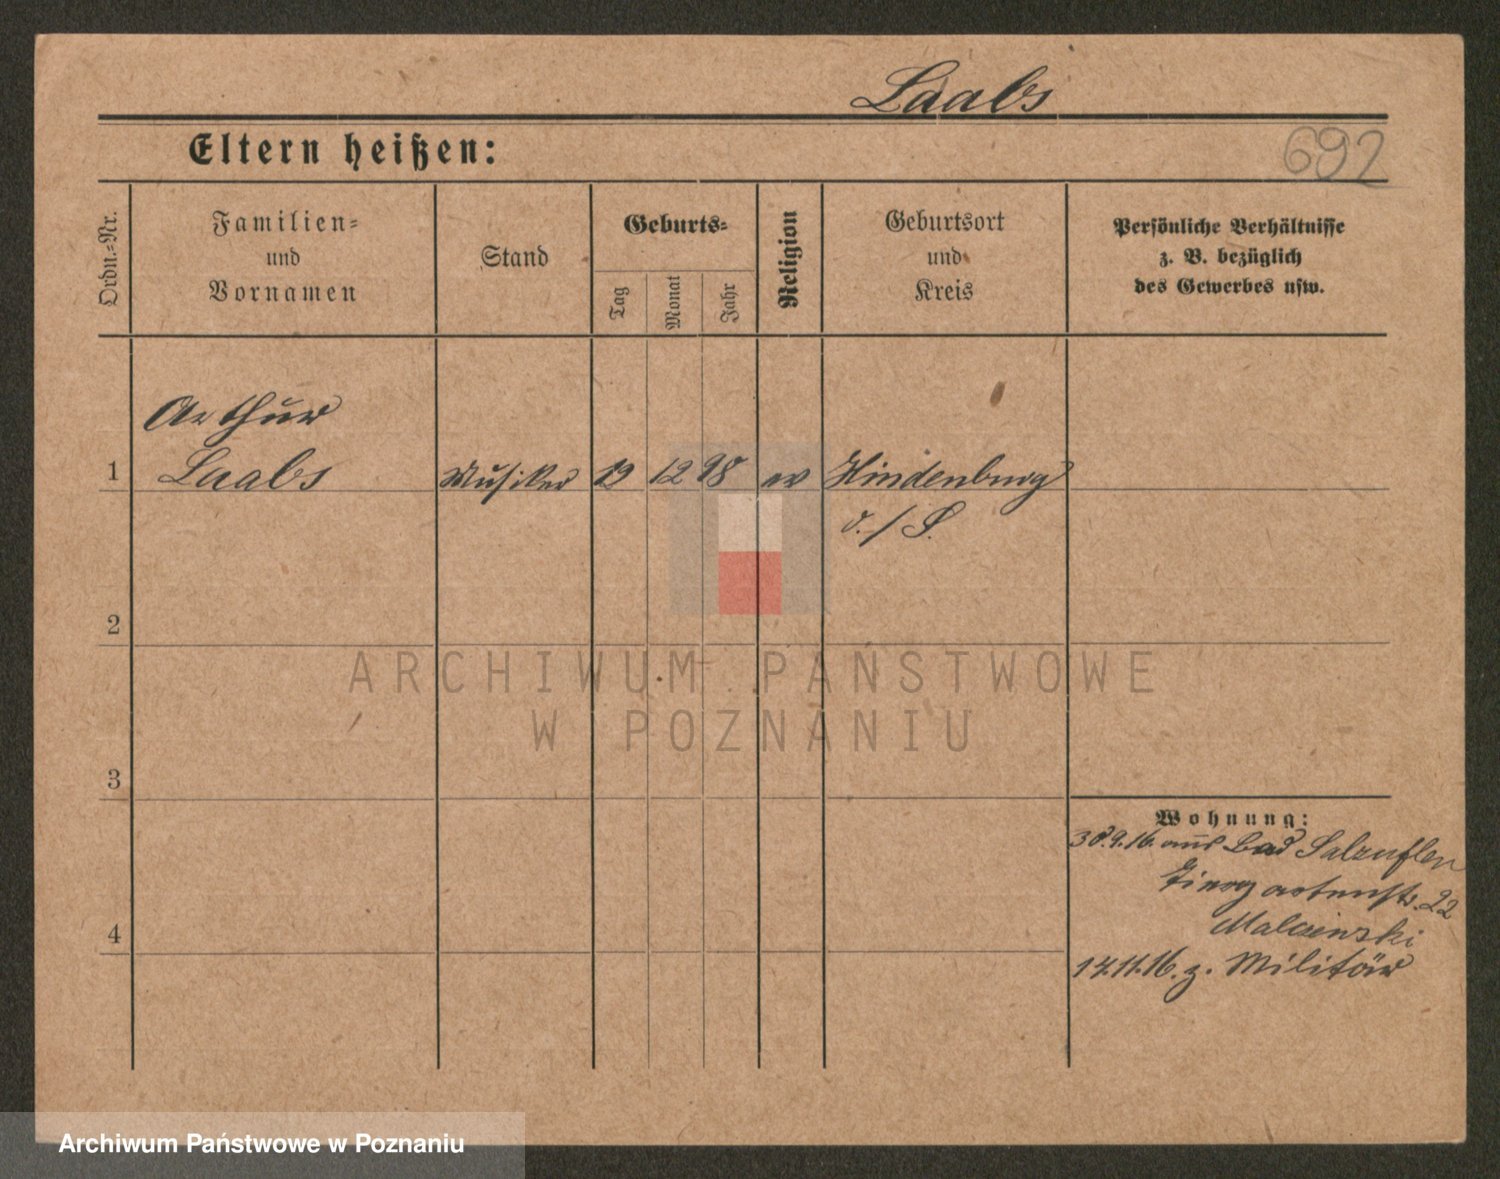 Laabs
Eltern heißen:
692
Ordn.-Nr.
Familien-
und
Vornamen
Stand
Geburts-
Tag
Monat
Jahr
Religion
Geburtsort
und
Kreis
Persönliche Verhältnisse
z. B. bezüglich
des Gewerbes usw.
1
Arthur
Laabs
Musiker
12 98
ev
Hindenburg
2
3
4
Wohnung:
30.9.16. aus Bad Salzuflen
Tiergartenstr. 22
Malczinski
14.11.16. z. Militär
ARCHIWUM PAŃSTWOWE
W POZNANIU
Archiwum Państwowe w Poznaniu